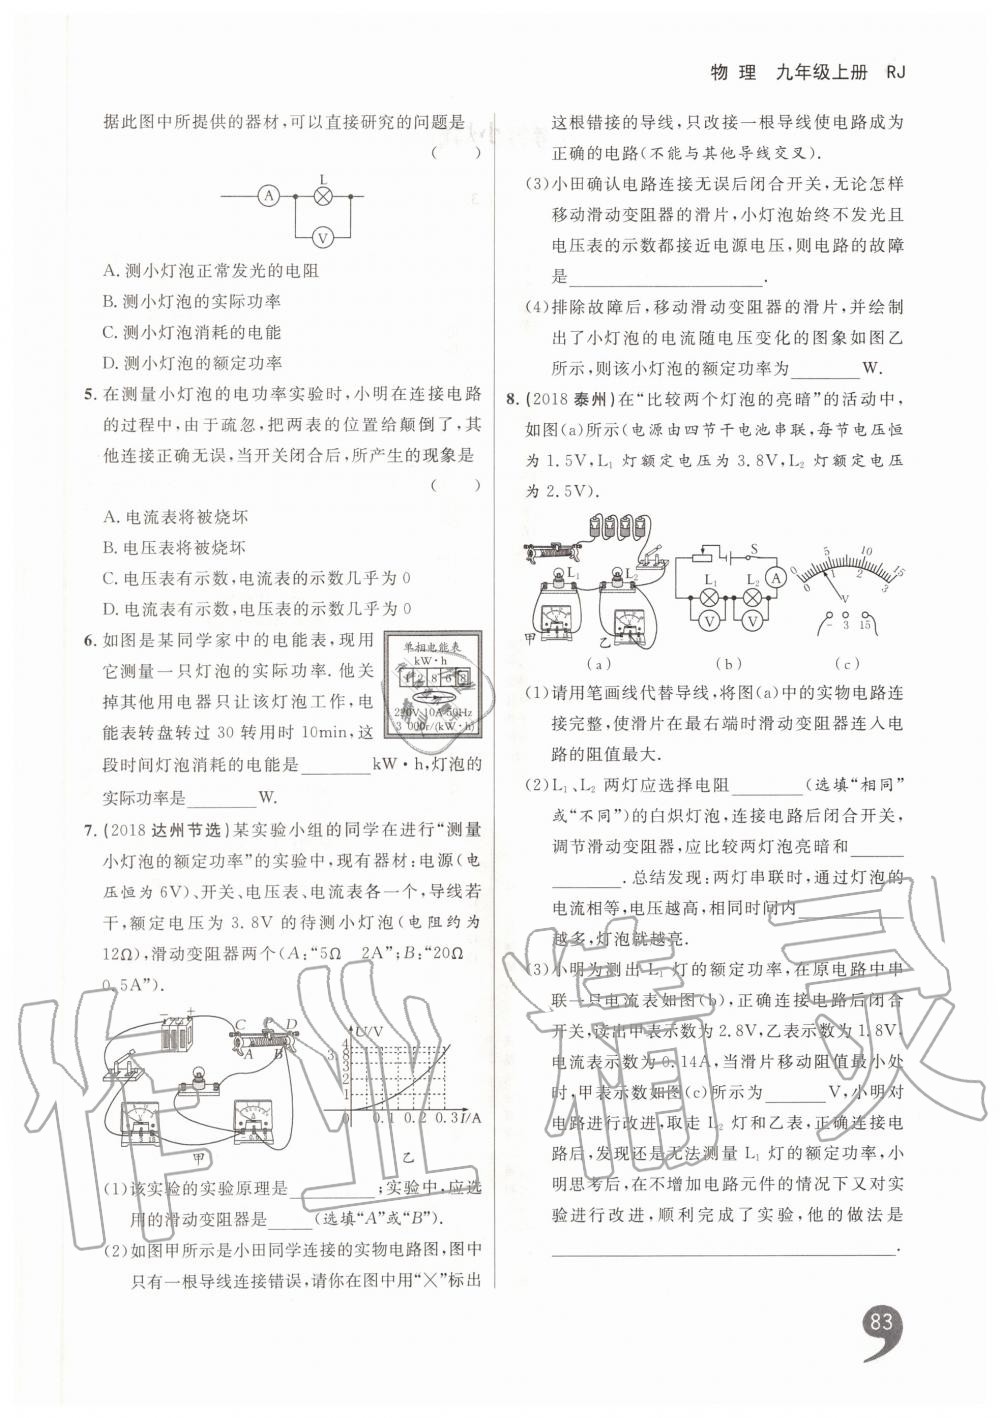 物 理 九年级上册 RJ
据此图中所提供的器材,可以直接研究的问题是
( )
A L V
A. 测小灯泡正常发光的电阻
B. 测小灯泡的实际功率
C. 测小灯泡消耗的电能
D. 测小灯泡的额定功率
5. 在测量小灯泡的电功率实验时,小明在连接电路
的过程中,由于疏忽,把两表的位置给颠倒了,其
他连接正确无误,当开关闭合后,所产生的现象是
( )
A. 电流表将被烧坏
B. 电压表将被烧坏
C. 电压表有示数,电流表的示数几乎为 0
D. 电流表有示数,电压表的示数几乎为 0
6. 如图是某同学家中的电能表,现用
它测量一只灯泡的实际功率. 他关
掉其他用电器只让该灯泡工作,电
能表转盘转过 30 转用时 10min,这
段时间灯泡消耗的电能是________kW·h,灯泡的
实际功率是________W.
单相电能表
kW·h
220V 10A 50Hz
3 000r/(kW·h)
7. (2018 达州节选)某实验小组的同学在进行“测量
小灯泡的额定功率”的实验中,现有器材:电源(电
压恒为 6V)、开关、电压表、电流表各一个,导线若
干,额定电压为 3.8V 的待测小灯泡(电阻约为
12Ω),滑动变阻器两个(A:“5Ω 2A”;B:“20Ω
0.5A”).
C P D
A B
甲
U/V
4
3.8
3
2
1
0 0.1 0.2 0.3 I/A
乙
(1)该实验的实验原理是__________;实验中,应选
用的滑动变阻器是_____(选填“A”或“B”).
(2)如图甲所示是小田同学连接的实物电路图,图中
只有一根导线连接错误,请你在图中用“×”标出
这根错接的导线,只改接一根导线使电路成为
正确的电路(不能与其他导线交叉).
(3)小田确认电路连接无误后闭合开关,无论怎样
移动滑动变阻器的滑片,小灯泡始终不发光且
电压表的示数都接近电源电压,则电路的故障
是______________________.
(4)排除故障后,移动滑动变阻器的滑片,并绘制
出了小灯泡的电流随电压变化的图象如图乙
所示,则该小灯泡的额定功率为________W.
8. (2018 泰州)在“比较两个灯泡的亮暗”的活动中,
如图(a)所示(电源由四节干电池串联,每节电压恒
为 1.5V,L₁ 灯额定电压为 3.8V,L₂ 灯额定电压
为 2.5V).
L₁ L₂
甲 乙
(a)
S
L₁ L₂ A
V V
(b)
0 5 10 15
0 1 2 3
V
- 3 15
(c)
(1)请用笔画线代替导线,将图(a)中的实物电路连
接完整,使滑片在最右端时滑动变阻器连入电
路的阻值最大.
(2)L₁、L₂ 两灯应选择电阻________(选填“相同”
或“不同”)的白炽灯泡,连接电路后闭合开关,
调节滑动变阻器,应比较两灯泡亮暗和______
________. 总结发现:两灯串联时,通过灯泡的
电流相等,电压越高,相同时间内____________
越多,灯泡就越亮.
(3)小明为测出 L₁ 灯的额定功率,在原电路中串
联一只电流表如图(b),正确连接电路后闭合
开关,读出甲表示数为 2.8V,乙表示数为 1.8V.
电流表示数为 0.14A,当滑片移动阻值最小处
时,甲表示数如图(c)所示为_______V,小明对
电路进行改进,取走 L₂ 灯和乙表,正确连接电
路后,发现还是无法测量 L₁ 灯的额定功率,小
明思考后,在不增加电路元件的情况下又对实
验进行改进,顺利完成了实验,他的做法是
______________________________________.
83
作业精灵